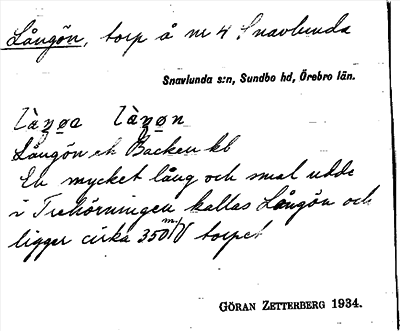 Långön, torp å nr 4 Snavlunda
Snavlunda s:n, Sundbo hd, Örebro län.
Långön ek Backen kb
En mycket lång och smal udde
i Trehörningen kallas Långön och
ligger cirka 350 m V torpet
GÖRAN ZETTERBERG 1934.